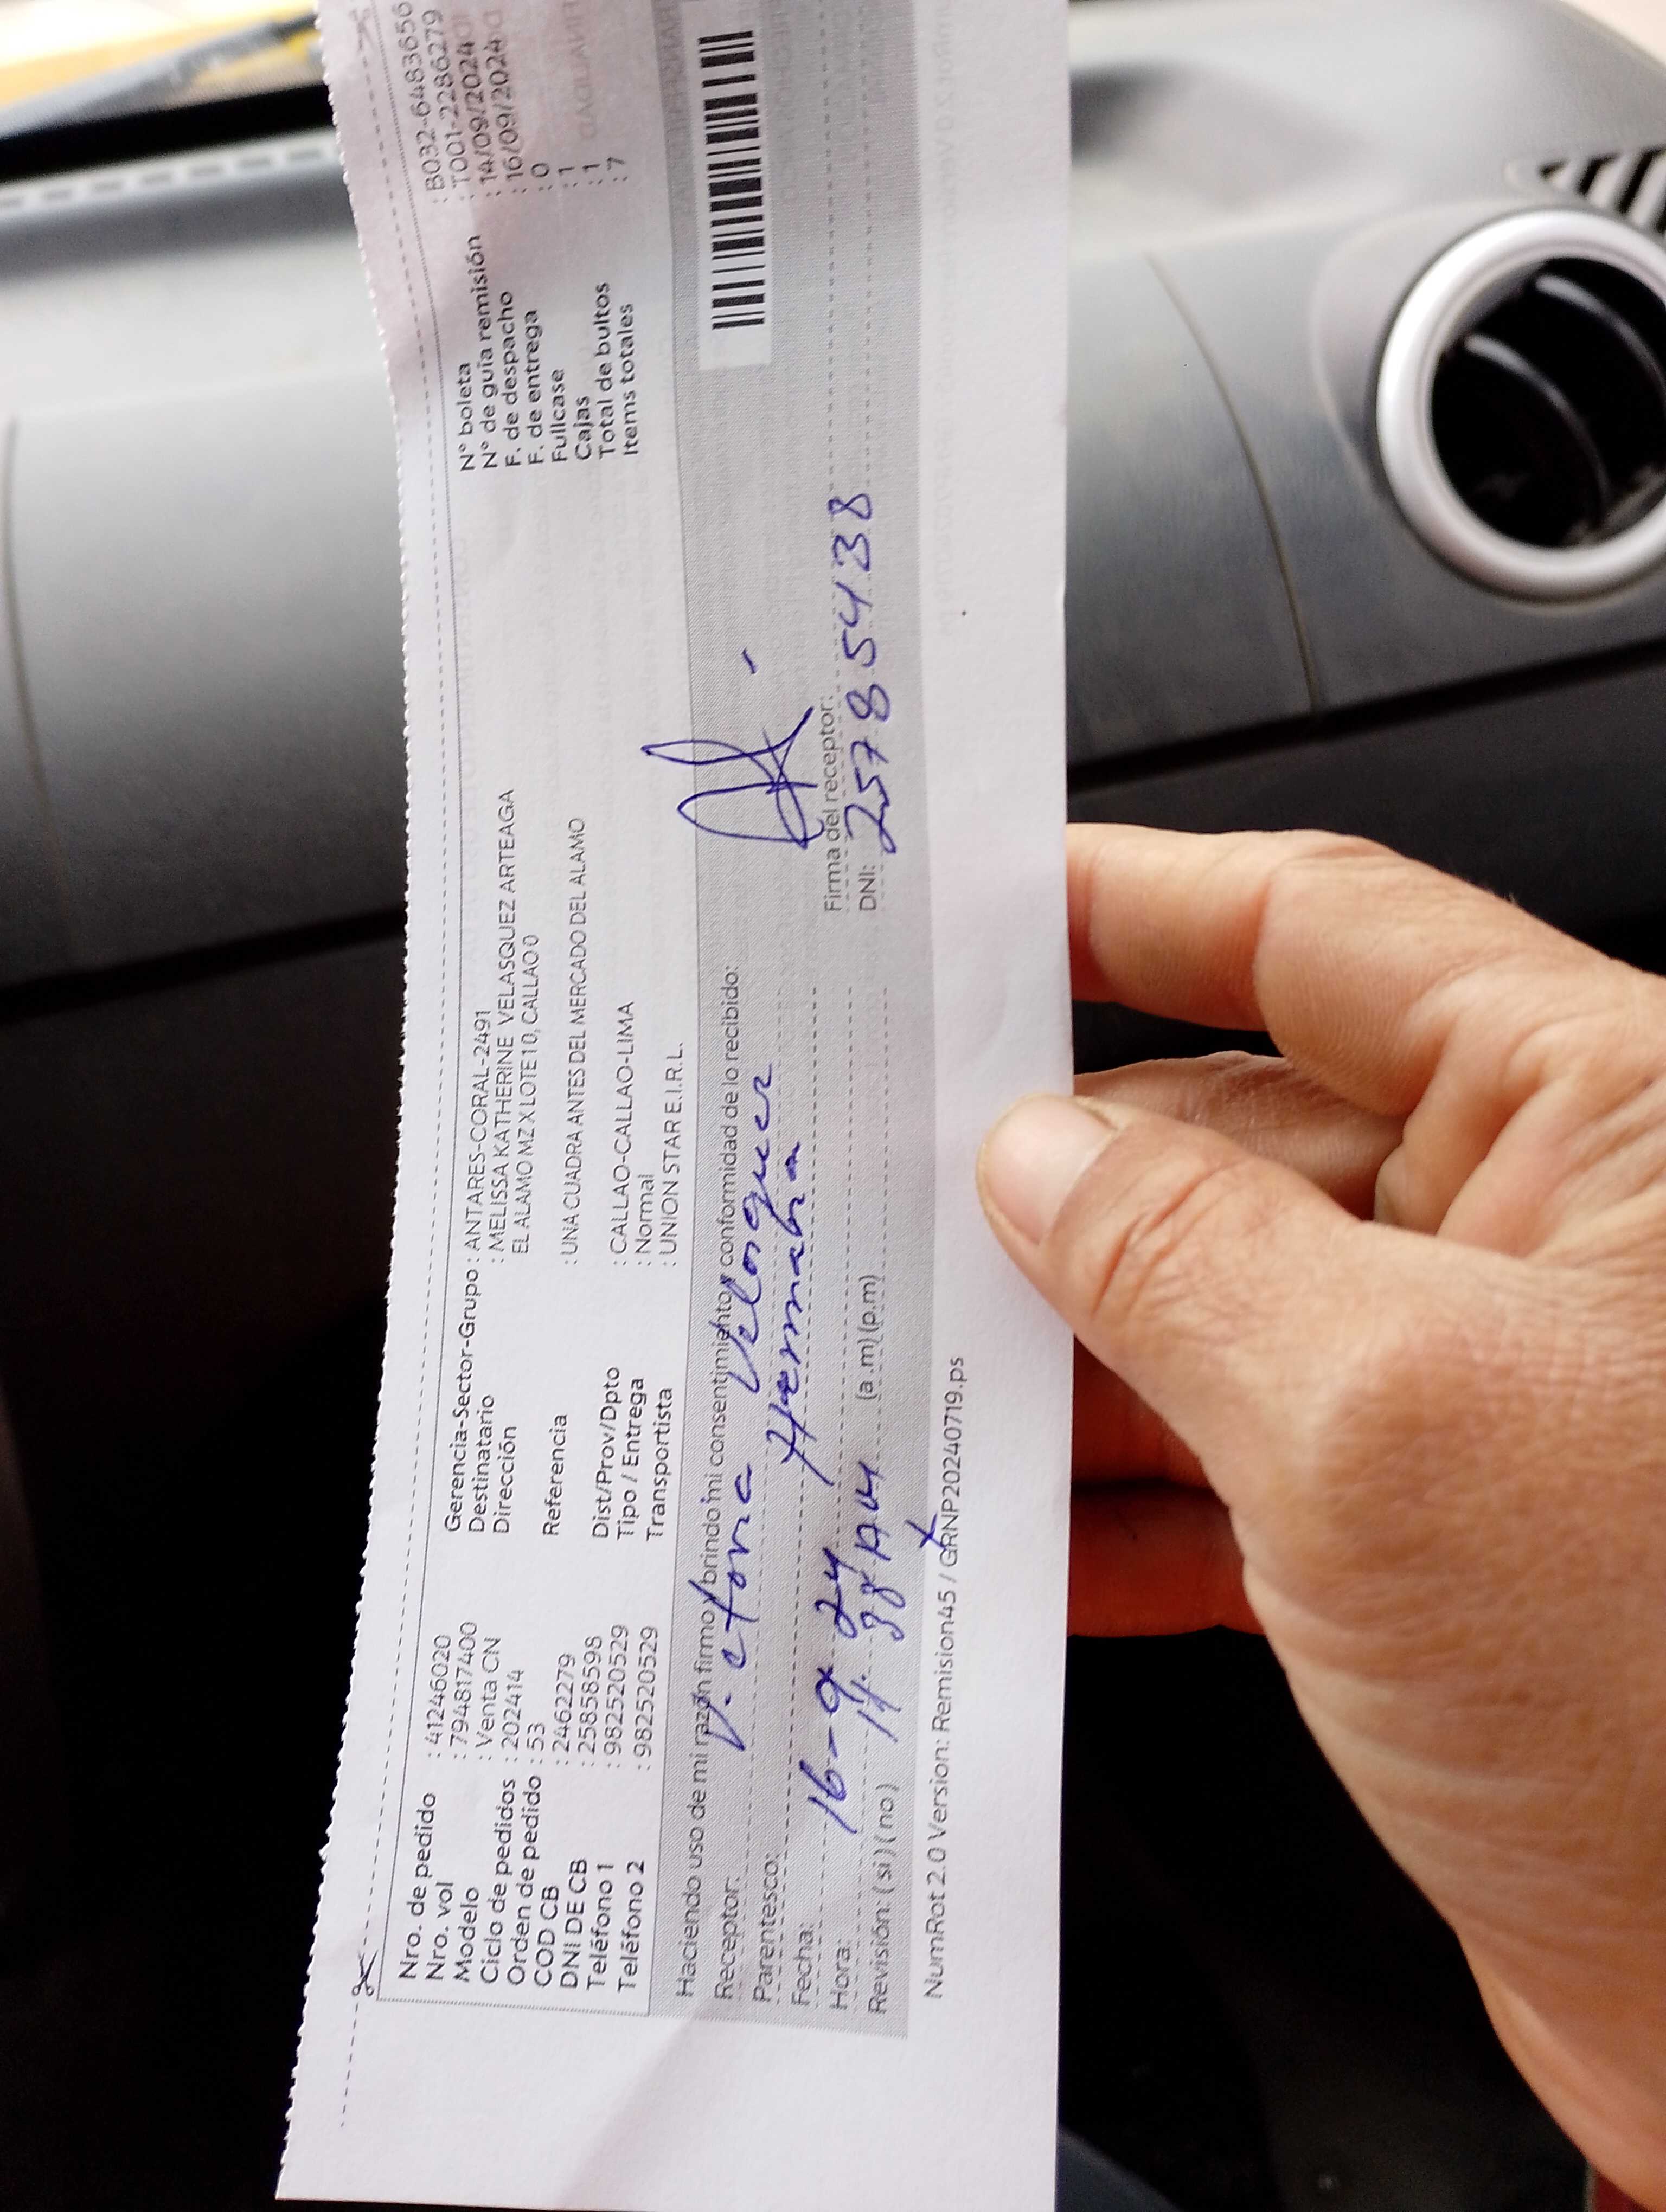 Nro. de pedido : 41246020
Nro. vol : 794817400
Modelo : Venta CN
Ciclo de pedidos : 202414
Orden de pedido : 53
COD CB : 2462279
DNI DE CB : 25858598
Teléfono 1 : 982520529
Teléfono 2 : 982520529
Gerencia-Sector-Grupo : ANTARES-CORAL-2491
Destinatario : MELISSA KATHERINE VELASQUEZ ARTEAGA
Dirección EL ALAMO MZ X LOTE 10, CALLAO 0
Referencia : UNA CUADRA ANTES DEL MERCADO DEL ALAMO
Dist/Prov/Dpto : CALLAO-CALLAO-LIMA
Tipo / Entrega : Normal
Transportista : UNION STAR E.I.R.L.
N° boleta : B032-6483656
N° de guía remisión : T001-2286279
F. de despacho : 14/09/2024
F. de entrega : 16/09/2024
Fullcase : 0
Cajas : 1
Total de bultos : 1
Items totales : 7
Haciendo uso de mi razón firmo y brindo mi consentimiento y conformidad de lo recibido:
Receptor:
Parentesco: Hermana
Fecha: 16-9 24
Hora: 11. 38 AM (a.m) (p.m)
Revisión: ( si ) ( no )
Firma del receptor:
DNI: 25785438
NumRot 2.0 Version: Remision45 / GRNP20240719.ps